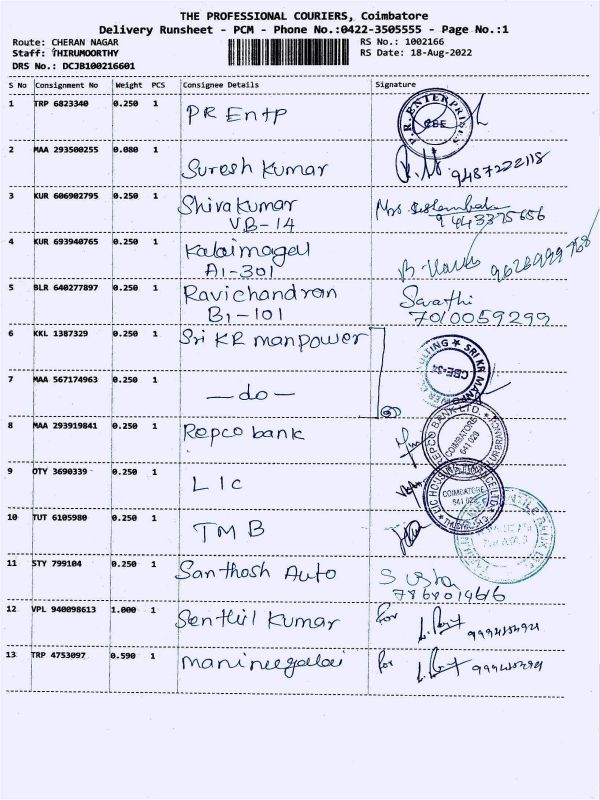 THE PROFESSIONAL COURIERS, Coimbatore
Delivery Runsheet - PCM - Phone No.:0422-3505555 - Page No.:1
Route: CHERAN NAGAR
RS No.: 1002166
Staff: THIRUMOORTHY
RS Date: 18-Aug-2022
DRS No.: DCJB100216601
S No Consignment No Weight PCS Consignee Details Signature
1 TRP 6823340 0.250 1 PR Entp P.R. ENTERPRISES CBE
2 MAA 293500255 0.080 1 Suresh Kumar 9487222118
3 KUR 606902795 0.250 1 Shivakumar Mrs.
VB-14 9443375656
4 KUR 693940765 0.250 1 Kalaimagal 9626999768
A1-301
5 BLR 640277897 0.250 1 Ravichandran Sarathi
B1-101 7010059299
6 KKL 1387329 0.250 1 Sri KR manpower SRI KR CBE-34
7 MAA 567174963 0.250 1 -do-
8 MAA 293919841 0.250 1 Repco bank REPCO BANK LTD. COIMBATORE 641 029
9 OTY 3690339 0.250 1 LIC LIC HOUSING FINANCE LTD COIMBATORE
10 TUT 6105980 0.250 1 TMB
11 STY 799104 0.250 1 Santhosh Auto
12 VPL 940098613 1.000 1 Senthil Kumar For
13 TRP 4753097 0.590 1 for